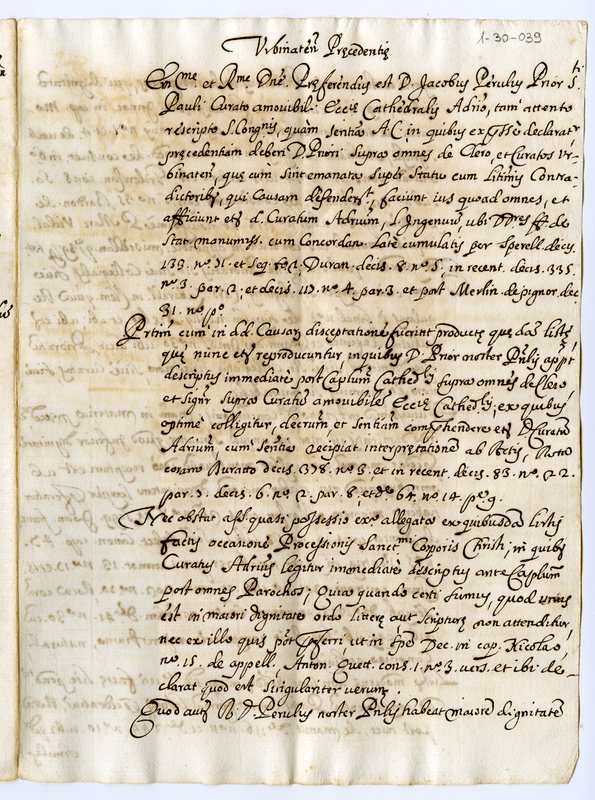 1-30-039
Urbinateñ Precedentię
Em̃e et Rme Dñe. Preferendus est D. Jacobus Perulius Prior S.
Pauli Curato amovibili Eccię Cathedralis Adrio, tam attento
rescripto S. Congnis, quam sententia A.C. in quibus expresse declaratr
precedentiam deberi D. Priori supra omnes de Clero, et Curatos Ur-
binaten, quę cum sint emanata super statu cum litimis Contra-
dictoribs, qui Causam defenderst, faciunt ius quoad omnes, et
afficiunt etȝ d. Curatum Adrium, L. Ingenuum, ubi DD. ff. de
stat. manumiss. cum Concordan. late cumulatis per Sperell. decis.
139. no. 71. et seq. Duran. decis. 8. no. 5. in recent. decis. 335.
no. 3. par. 2. et decis. 117. no. 4. par. 3. et post Merlin. de pignor. dec.
31. no. po.
Prtim cum in dd. Causar disceptatione fuerint productę quędaz listę,
quę nunc etȝ reproducuntur in quibus D. Prior noster Pnlis appt
descriptus immediate post Caplum Cathedlis supra omnes de Clero
et signr supra Curatos amovibiles Eccię Cathedlis, ex quibus
optime colligitur, decretum et sententiam comprehendere etȝ D. Curatu
Adrium, cum sententia recipiat interpretatione ab Actis, Rota
coram Buratto decis. 378. no. 3. et in recent. decis. 83. no. 22.
par. 7. decis. 6. no. 2. par. 8. et dec. 64. no. 14. p. 9.
Nec obstat asst. quasi possessio exo allegata ex quibusdã listis
factis occasione Processionis Sanctmi Corporis Christi, in quibs
Curatus Adrius legitur immediate descriptus ante Caplum
post omnes Parochos; Quia quando certi sumus, quod unus
est in maiori dignitate ordo litterę aut scripturę non attenditur,
nec ex illo quis pot pferri, ut in Dec. in cap. Nicolao,
no. 15. de appell. Anton. Quett. cons. 1. no. 3. vers. et ibi de-
clarat quod est singulariter verum.
Quod autȝ R. D. Perulius noster Pnlis habeat maiore dignitate